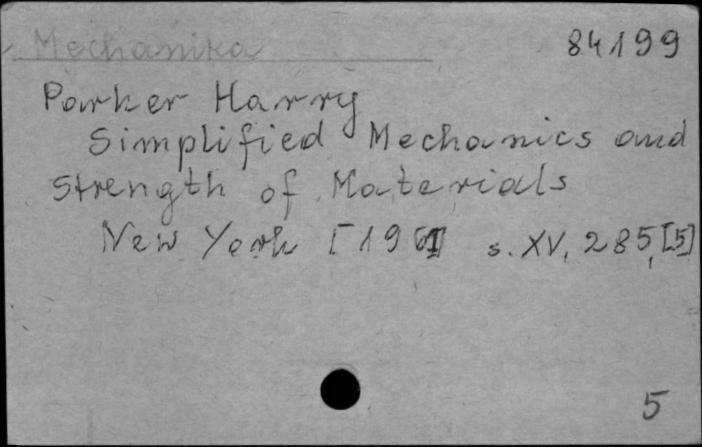 Mechanika 84199
Parker Harry
Simplified Mechanics and
Strength of Materials
New York [1961] s. XV, 285, [5]
5